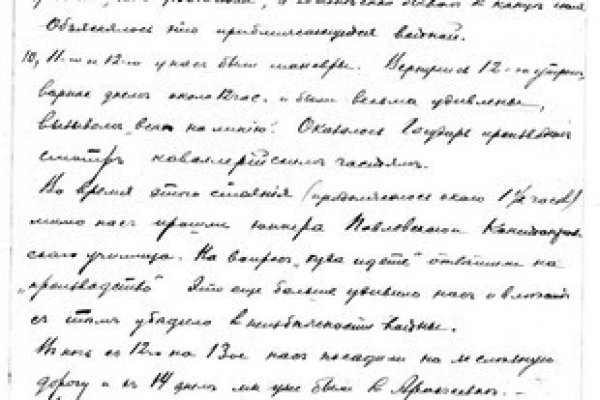 Объяснялось это приближающейся войной.
10, 11-го и 12-го у нас были маневры. Вернулись 12-го утром,
вернее днем около 12 час. и были весьма удивлены,
вызовом „всех на линию“. Оказалось Государь производил
смотр кавалерийским частям.
Во время этого стояния (продолжалось около 1½ часов)
мимо нас прошли юнкера Павловского
училища. На вопрос „куда идете“ ответили на
„производство“ Это еще больше удивило нас и
с тем убедило в неизбежности войны.
В ночь с 12-го на 13-ое нас посадили на железную
дорогу и 14 днем мы уже были в